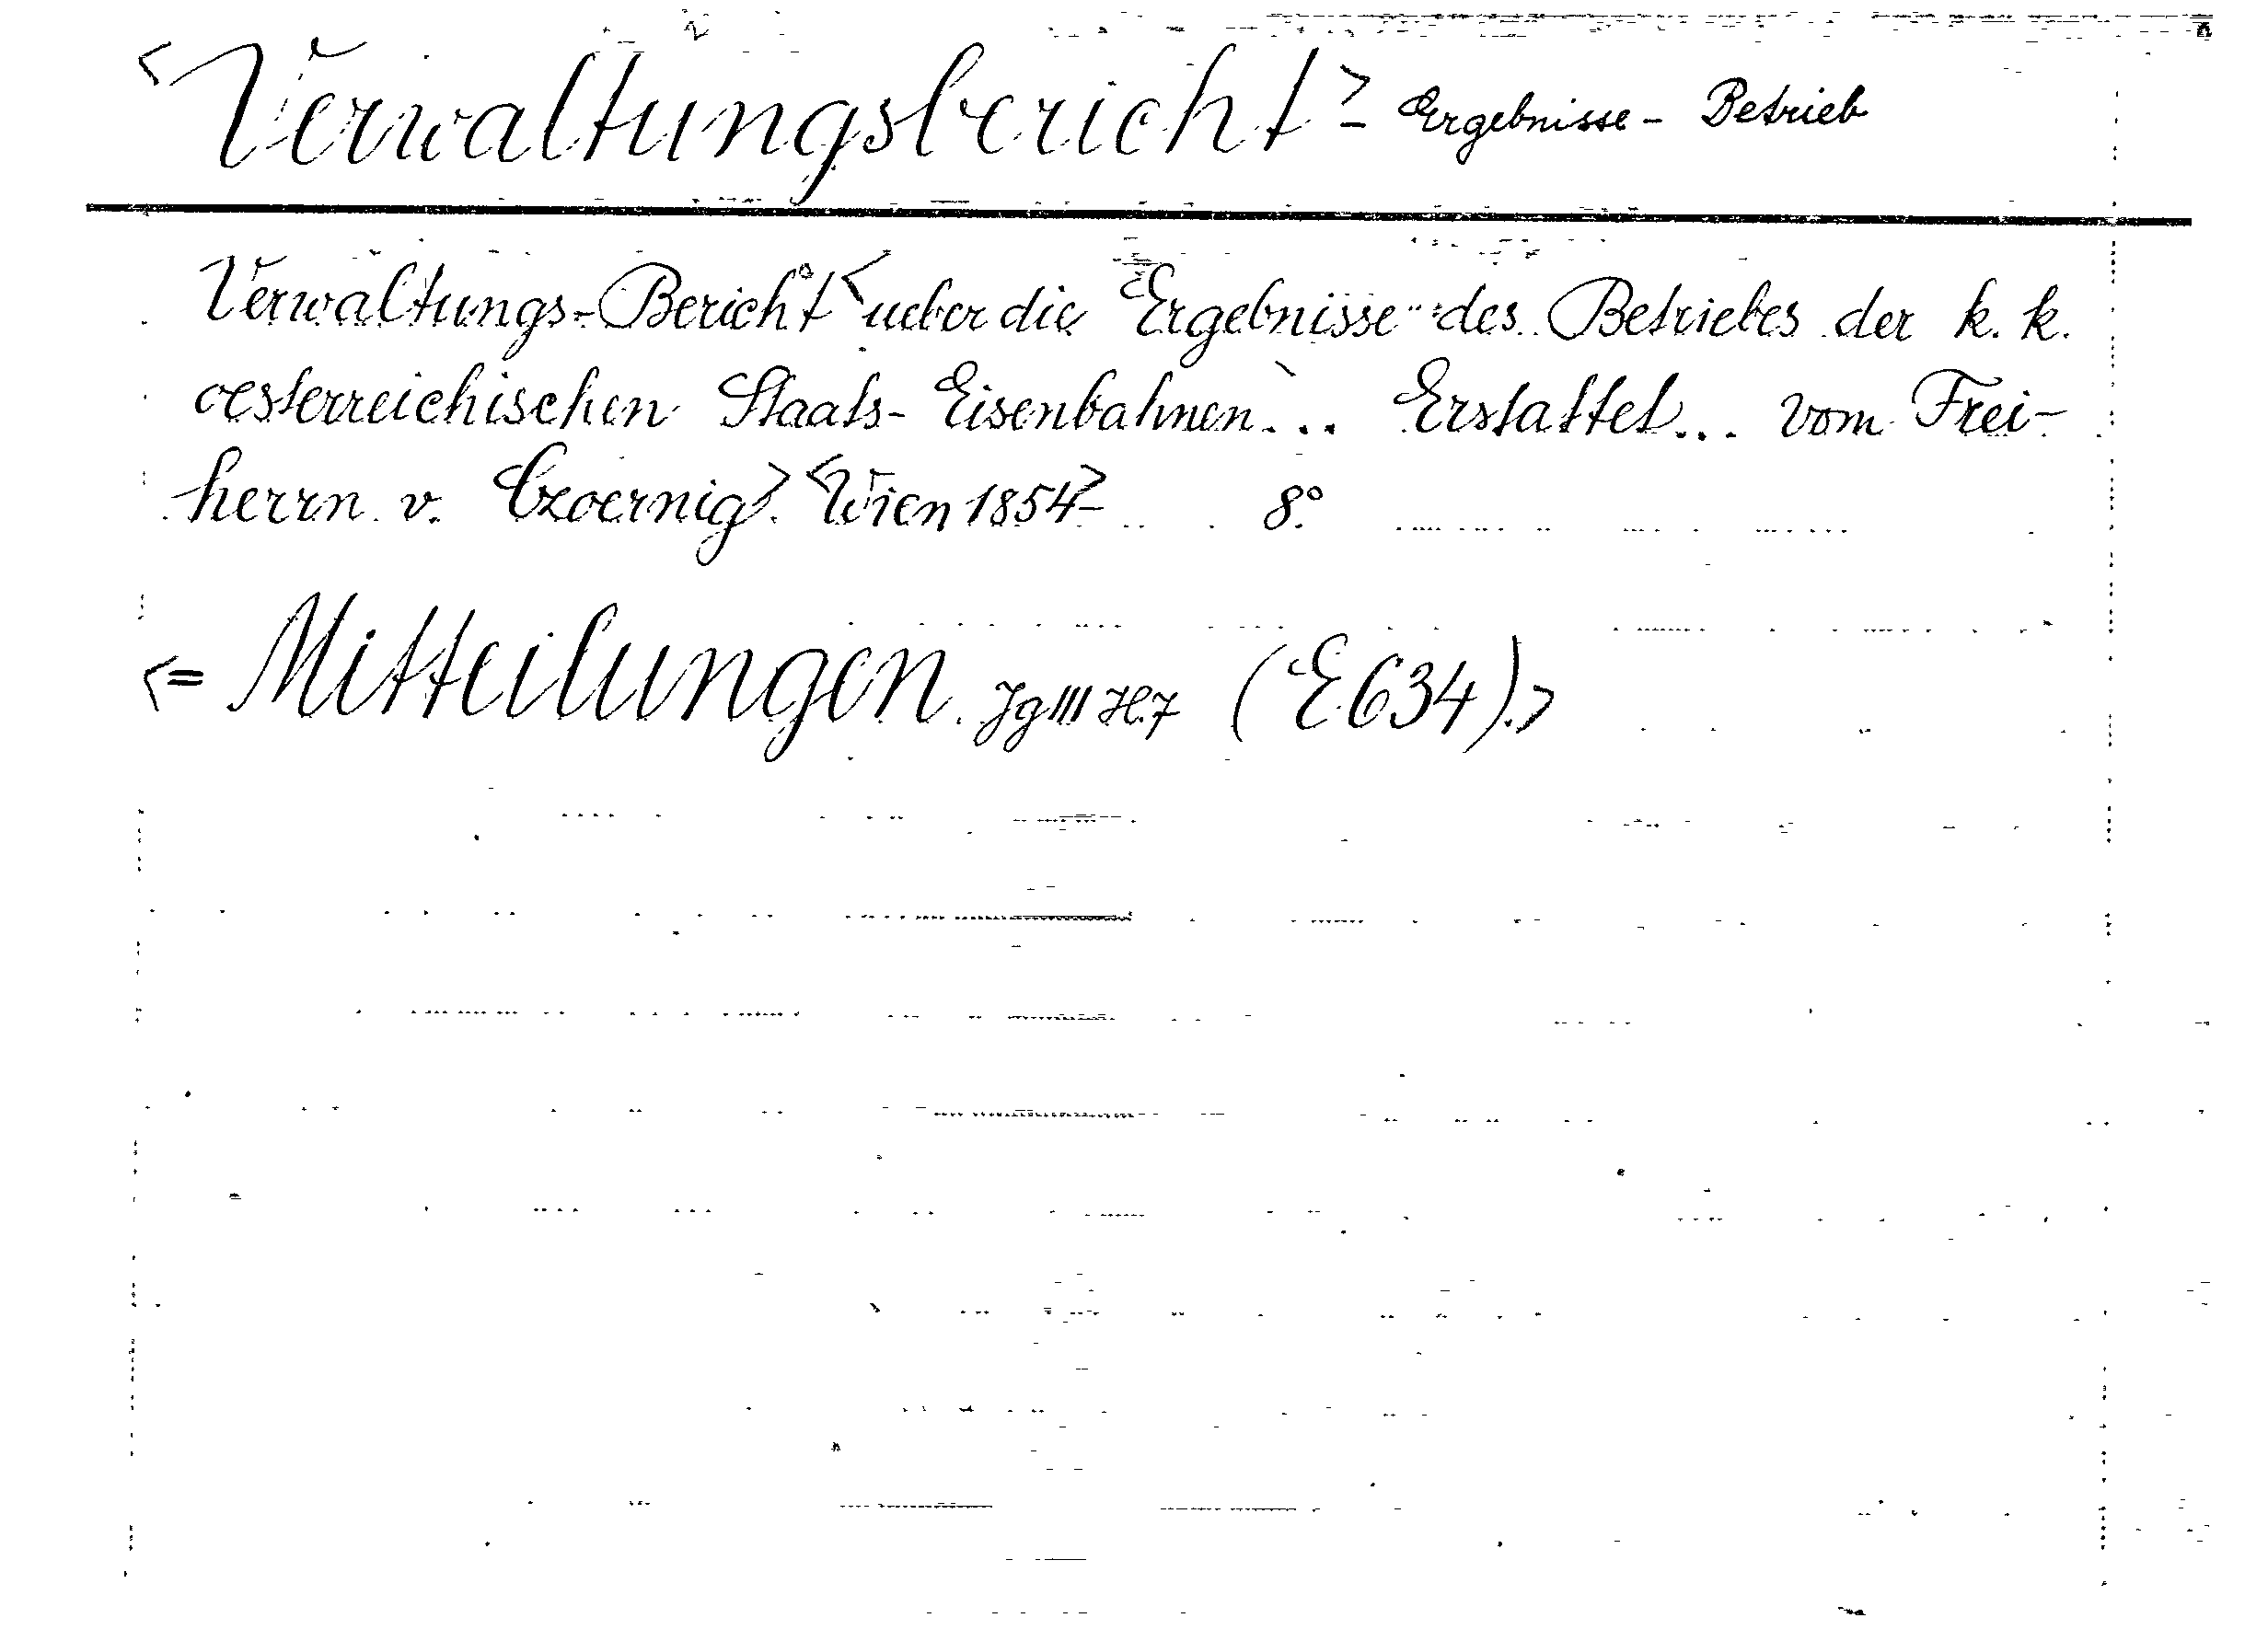 <Verwaltungsbericht> - Ergebnisse - Betrieb
Verwaltungs-Bericht <ueber die Ergebnisse des Betriebes der k. k.
oesterreichischen Staats-Eisenbahnen... Erstattet... vom Frei-
herrn v. Czoernig>. <Wien 1854> - 8°.
<= Mitteilungen. Jg III H.7 (E634).>